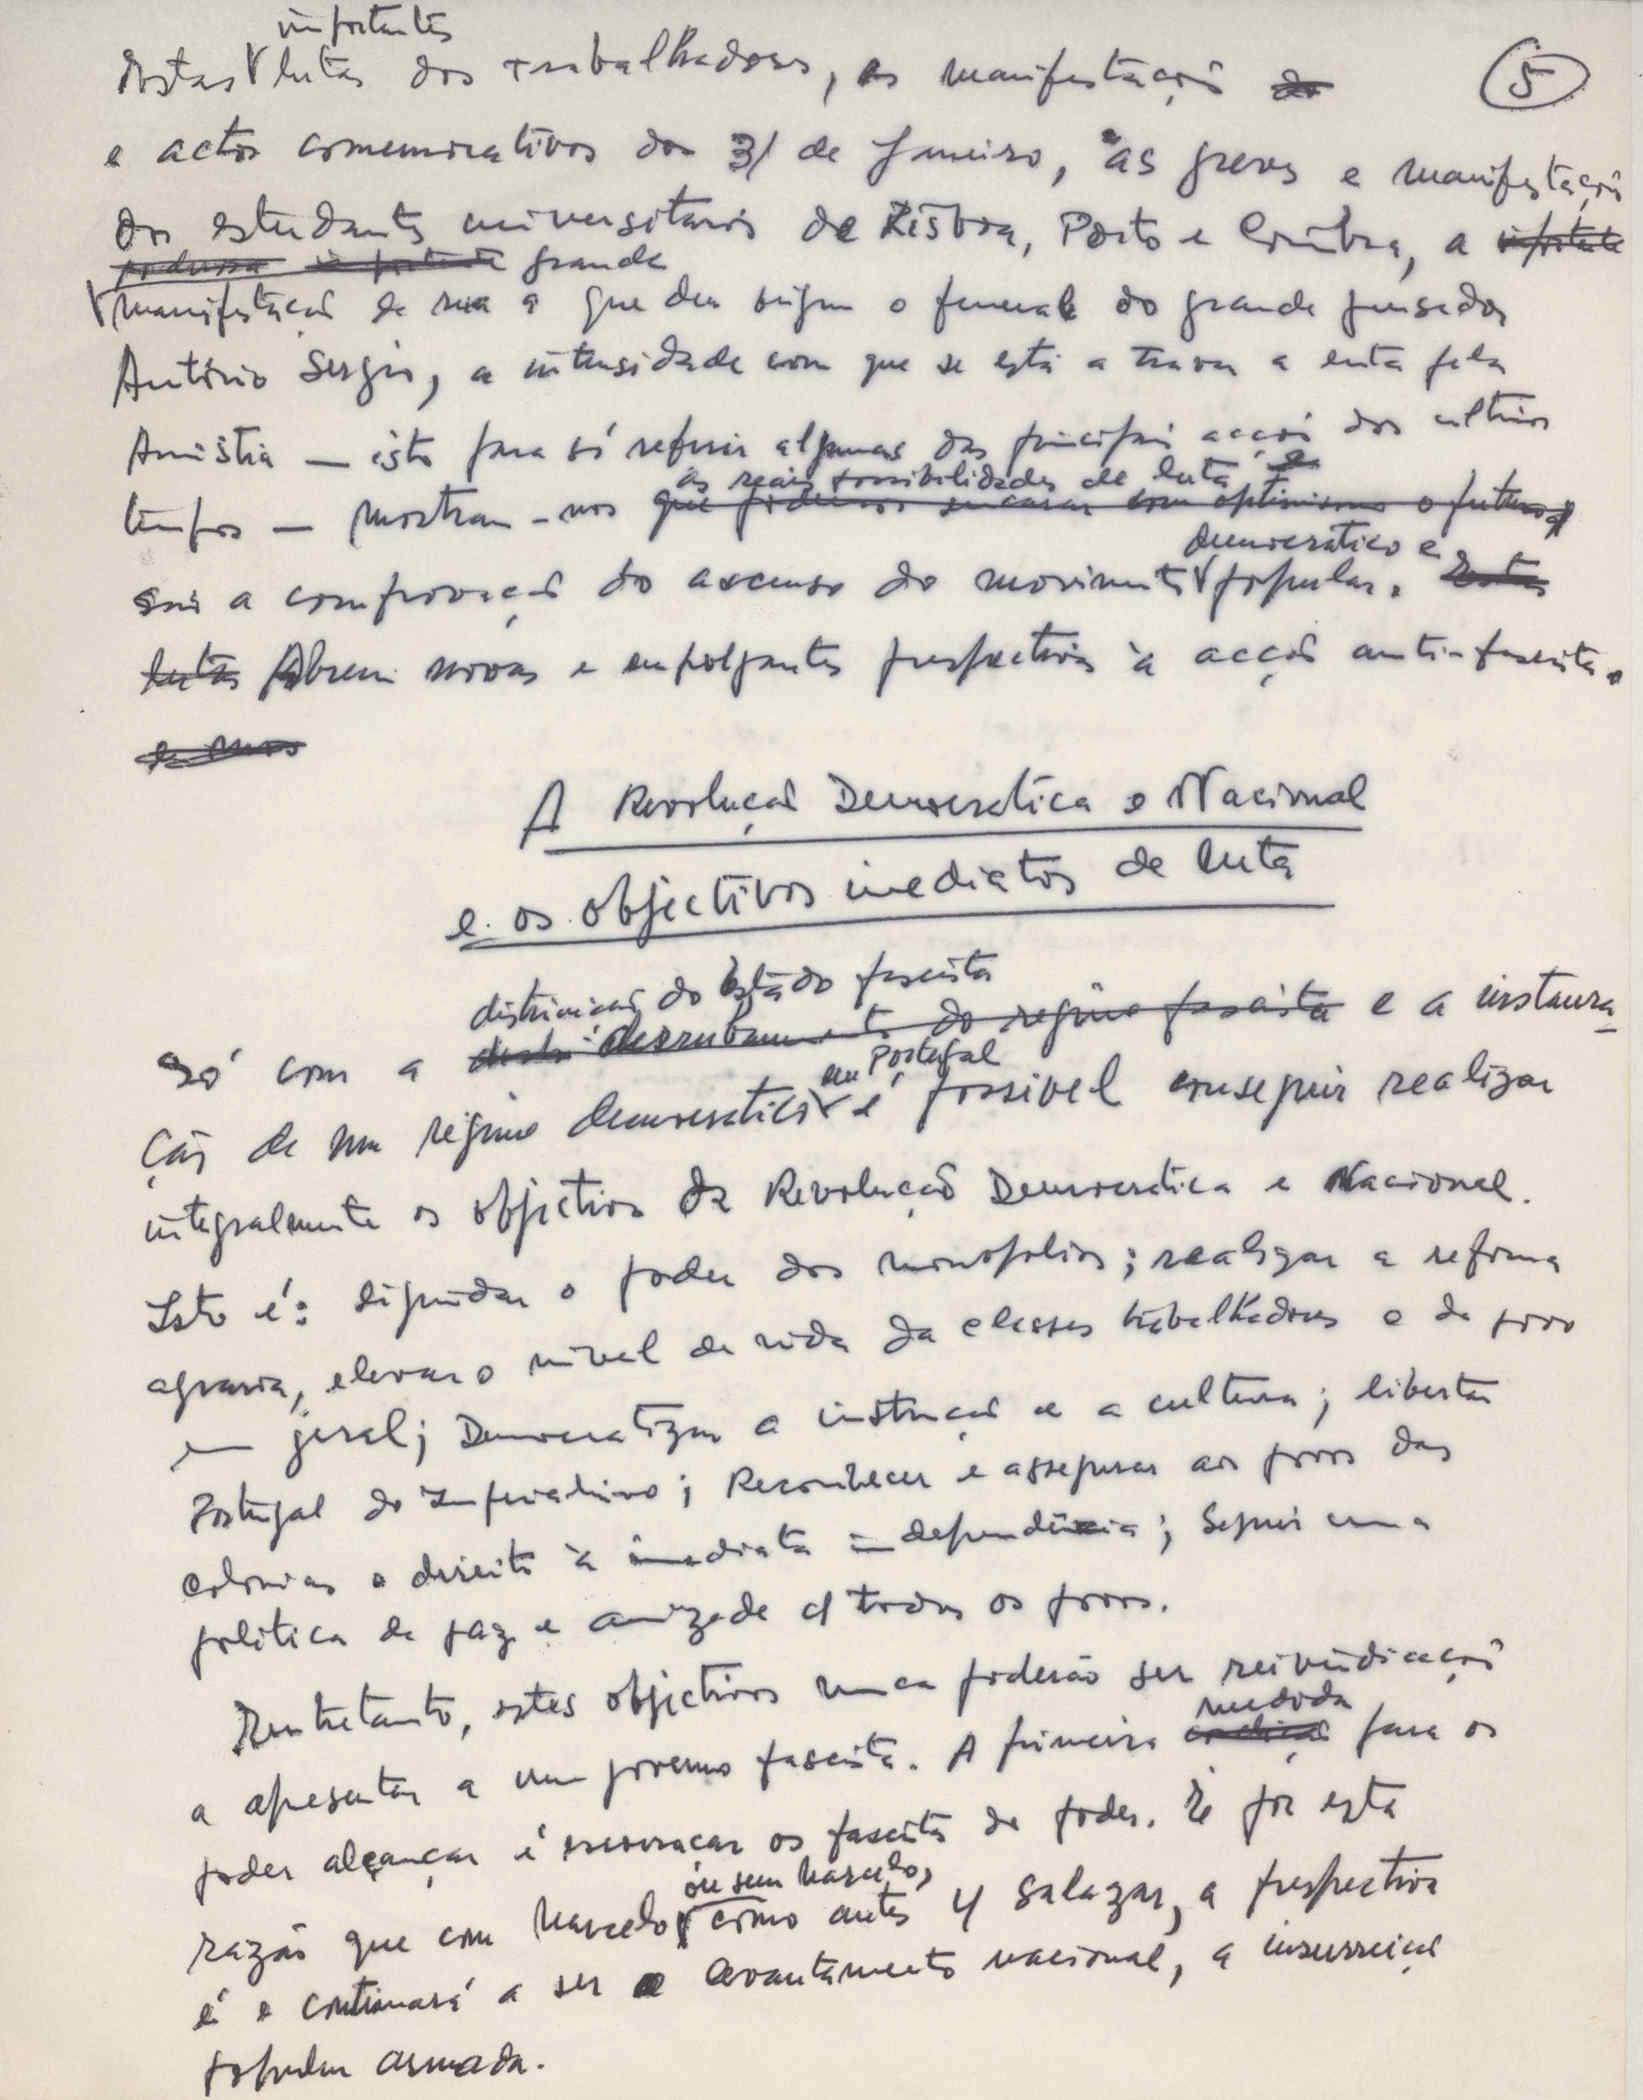 importantes
Estas lutas dos trabalhadores, as manifestações do
5
e actos comemorativos do 31 de Janeiro, as greves e manifestações
dos estudantes universitarios de Lisboa, Porto e Coimbra, a importante
poderosa importante grande
manifestação de rua a que deu origem o funeral do grande pensador
António Sergio, a intensidade com que se está a travar a luta pela
Amistia — isto para só referir algumas das principais acções dos ultimos
as reais possibilidades de luta e
tempos — mostram-nos que podemos encarar com optimismo o futuro
democratico e
são a comprovação do ascenso do movimento popular. Estas
lutas Abrem novas e empolgantes prespectivas à acção anti-fascista.
e nos
A Revolução Democratica e Nacional
e os objectivos imediatos de luta
distruição do Estado fascista
Só com a destr derrubamento do regime fascista e a instaura
em Portugal
ção de um regime democratico é possivel conseguir realizar
integralmente os objectivos da Revolução Democratica e Nacional.
Isto é: liquidar o poder dos monopolios; realizar a reforma
agraria, elevar o nivel de vida da classes trabalhadoras e do povo
em geral; Democratizar a instrução e a cultura; libertar
Portugal do Imperialismo; Reconhecer e assegurar aos povos das
colonias o direito à imediata independência; Seguir uma
politica de paz e amizade c/ todos os povos.
Entretanto, estes objectivos nunca poderão ser reivindicações
medida
a apresentar a um governo fascista. A primeira condição para os
poder alcançar é desalojar os fascistas do poder. É por esta
ou sem Marcelo,
razão que com Marcelo como antes c/ Salazar, a prespectiva
é e continuará a ser o levantamento nacional, a insurreição
popular armada.